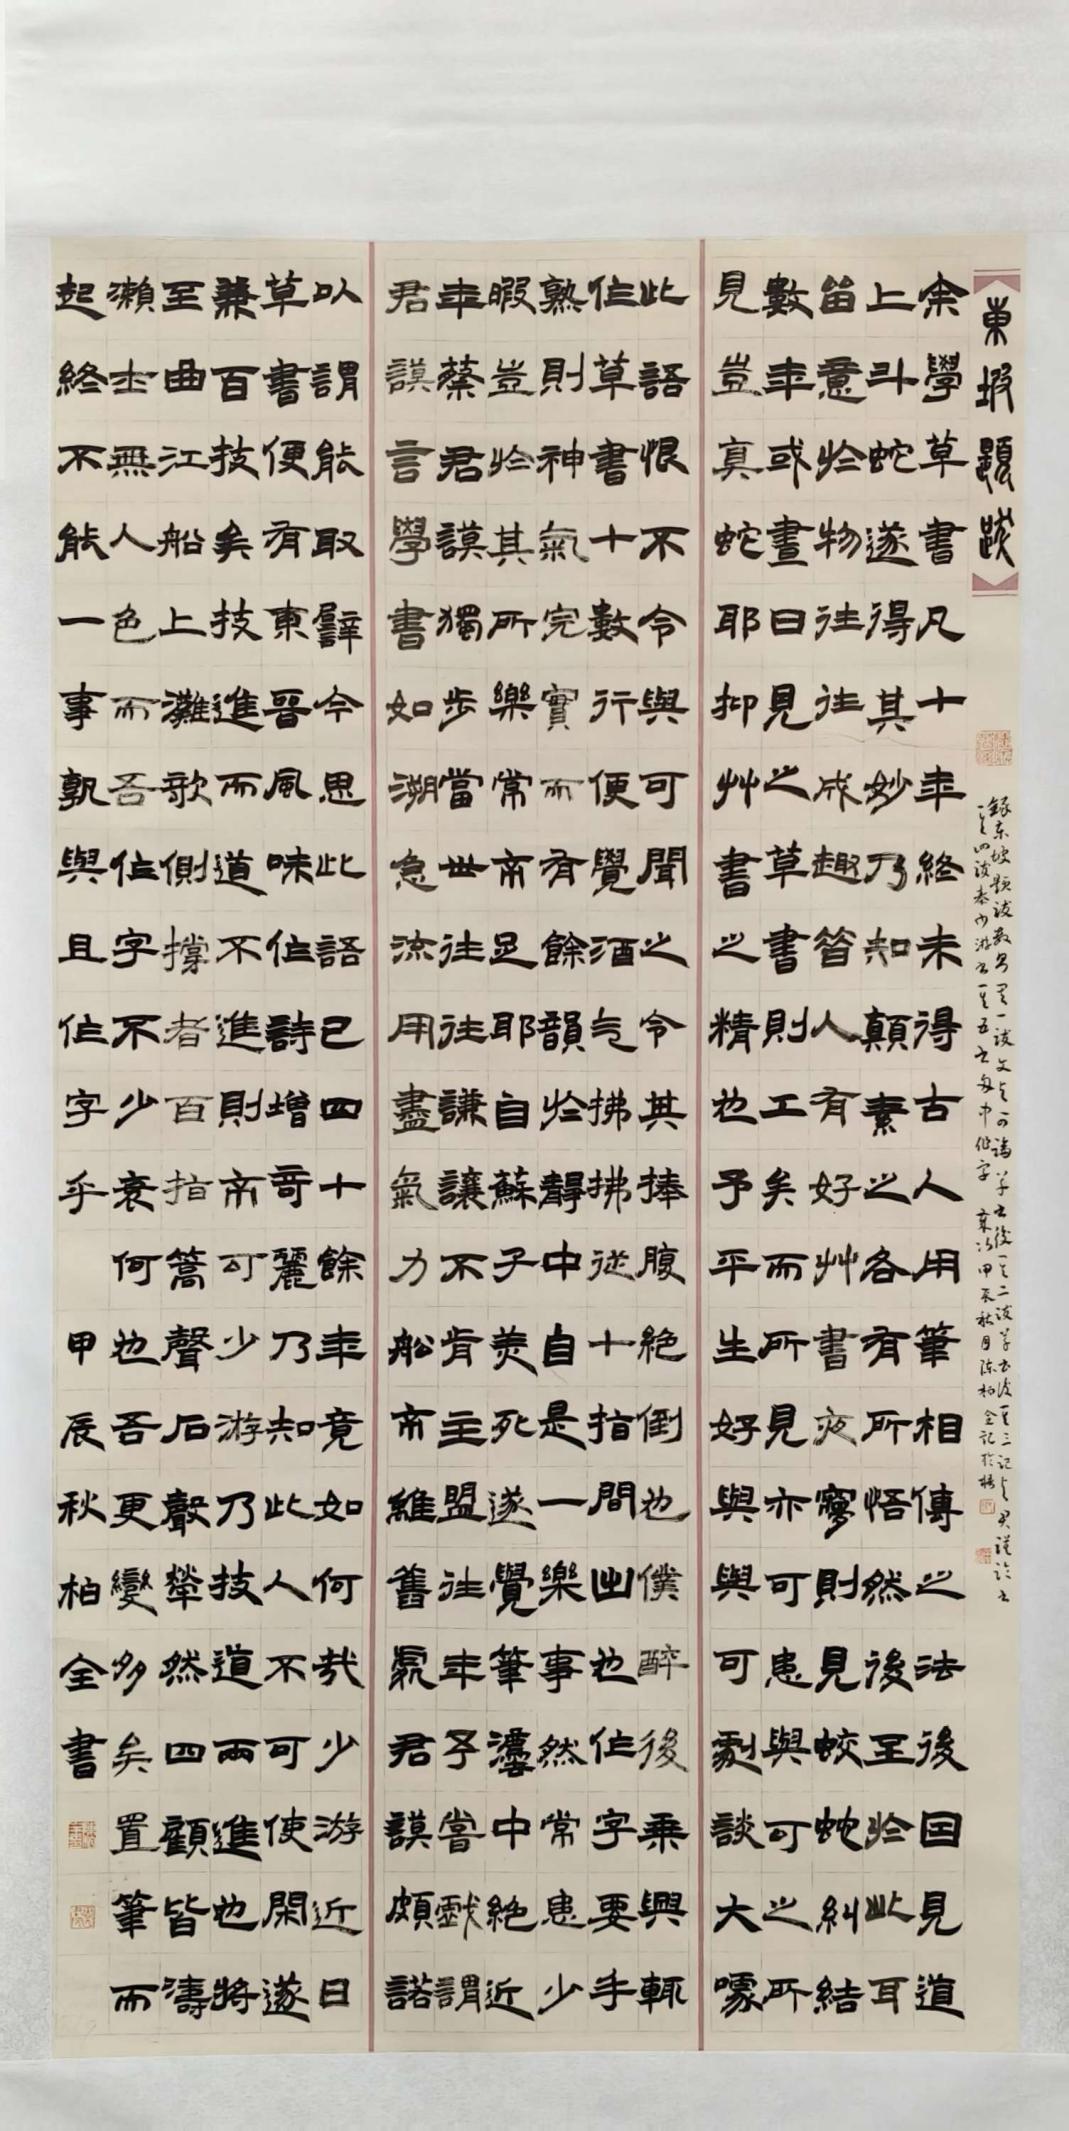 東坡題跋
余學草書凡十年終未得古人用筆相傳之法後因見道
上斗蛇遂得其妙乃知顛素之各有所悟然後至於此耳
留意於物往往成趣昔人有好艸書夜夢則見蛟蛇糾結
數年或晝日見之草書則工矣而所見亦可患與可之所
見豈真蛇耶抑艸書之精也予平生好與與可劇談大噱
此語恨不令與可聞之令其捧腹絕倒也僕醉後乘興輒
作草書十數行便覺酒气拂拂從十指間出也作字要手
熟則神氣完實而有餘韻於靜中自是一樂事然常患少
暇豈於其所樂常不足耶自蘇子美死遂覺筆灋中絕近
年蔡君謨獨步當世往往謙讓不肯主盟往年予嘗戲謂
君謨言學書如溯急流用盡氣力船不離舊處君謨頗諾
以謂能取譬今思此語已四十餘年竟如何哉少游近日
草書便有東晉風味作詩增奇麗乃知此人不可使閑遂
兼百技矣技進而道不進則不可少游乃技道兩進也將
至曲江船上灘欹側撐者百指篙聲石聲犖然四顧皆濤
瀨士無人色而吾作字不少衰何也吾更變多矣置筆而
起終不能一事孰與且作字乎 甲辰秋柏全書
錄東坡題跋數則其一跋文與可論草書後其二跋草書後其三記與君謨論書
其四跋秦少游書其五書舟中作字 甲辰秋月陳柏全記於